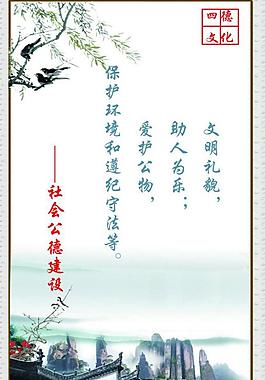 四德
文化
文明礼貌，
助人为乐；
爱护公物，
保护环境和遵纪守法等。
——社会公德建设